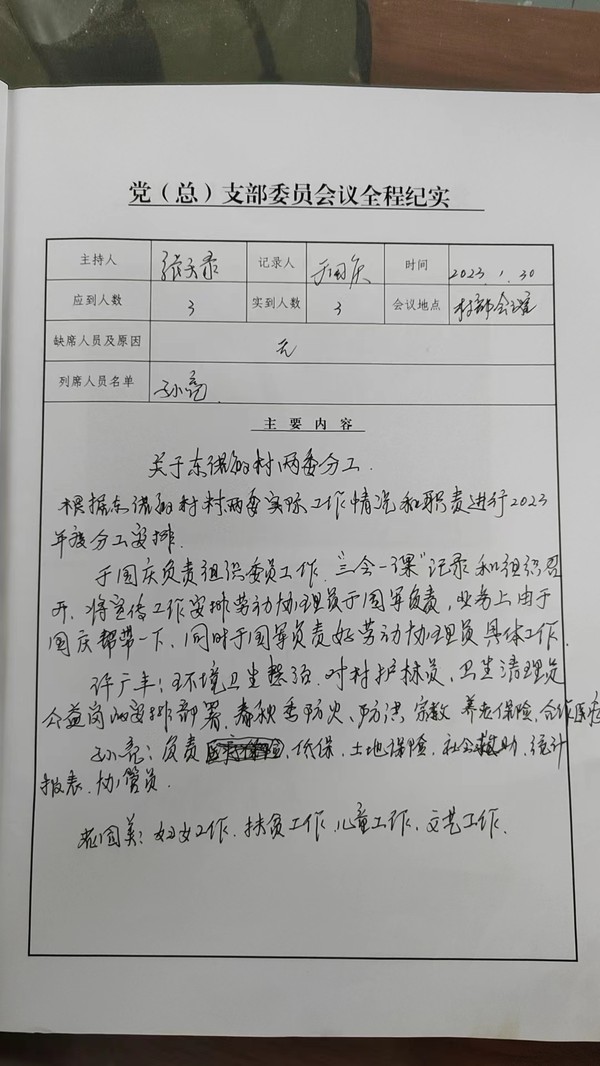 党（总）支部委员会议全程纪实
主持人 记录人 于国庆 时间 2023.1.30
应到人数 3 实到人数 3 会议地点 村部会议室
缺席人员及原因 无
列席人员名单 孙亮
主要内容
关于东 村两委分工.
根据东 村村两委实际工作情况和职责进行2023
年度分工安排.
于国庆负责组织委员工作.“三会一课”记录和组织召
开、将宣传工作安排劳动协理员于国军负责,业务上由于
国庆帮带一下、同时于国军负责好劳动协理员具体工作.
许广丰:环境卫生整治.对村护林员,卫生清理员
公益岗的安排部署、春秋季防火、防洪、宗教 养老保险、合作医疗
孙亮:负责 、低保、土地保险、社会救助、统计
报表、协管员.
国美:妇女工作、扶贫工作、儿童工作、文艺工作.